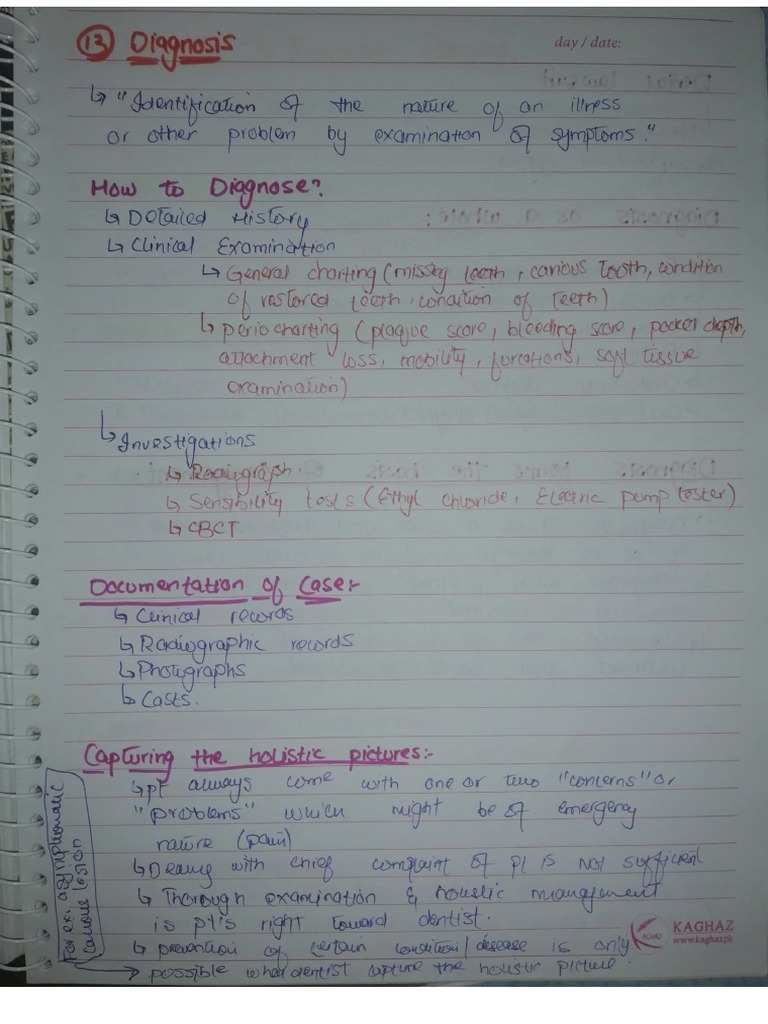 13 Diagnosis
day / date:
↳ "Identification of the nature of an illness
or other problem by examination of symptoms."
How to Diagnose?
↳ Detailed History
↳ Clinical Examination
↳ General charting (missing teeth, carious tooth, condition
of restored teeth, condition of teeth)
↳ periocharting (plaque score, bleeding score, pocket depth,
attachment loss, mobility, furcations, soft tissue
examination)
↳ Investigations
↳ Radiograph
↳ Sensibility tests (Ethyl chloride, Electric pump tester)
↳ CBCT
Documentation of Case:-
↳ Clinical records
↳ Radiographic records
↳ Photographs
↳ Casts.
Capturing the holistic pictures:-
↳ pt always come with one or two "concerns" or
"problems" which might be of emergency
nature (pain)
↳ Dealing with chief complaint of pt is not sufficient
↳ Thorough examination & holistic management
is pt's right toward dentist.
↳ prevention of certain condition/disease is only
possible when dentist capture the holistic picture.
For ex. asymptomatic
carious lesion
KAGHAZ
www.kaghaz.pk